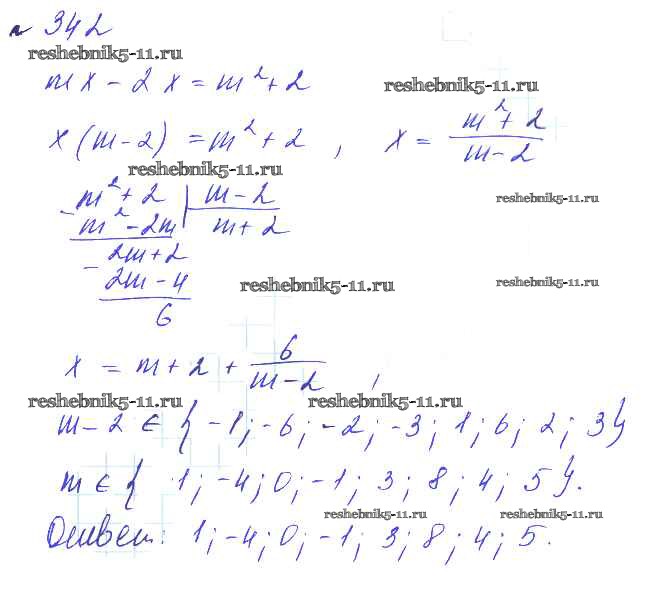 № 342
reshebnik5-11.ru
mx - 2x = m² + 2
reshebnik5-11.ru
x(m-2) = m² + 2 , x = (m² + 2)/(m-2)
reshebnik5-11.ru
reshebnik5-11.ru
- m² + 2 | m - 2
m² - 2m | m + 2
- 2m + 2
2m - 4
6
reshebnik5-11.ru
reshebnik5-11.ru
x = m + 2 + 6/(m-2) ,
reshebnik5-11.ru
reshebnik5-11.ru
m - 2 ∈ { -1; -6; -2; -3; 1; 6; 2; 3}
m ∈ { 1; -4; 0; -1; 3; 8; 4; 5}.
reshebnik5-11.ru
reshebnik5-11.ru
Ответ: 1; -4; 0; -1; 3; 8; 4; 5.